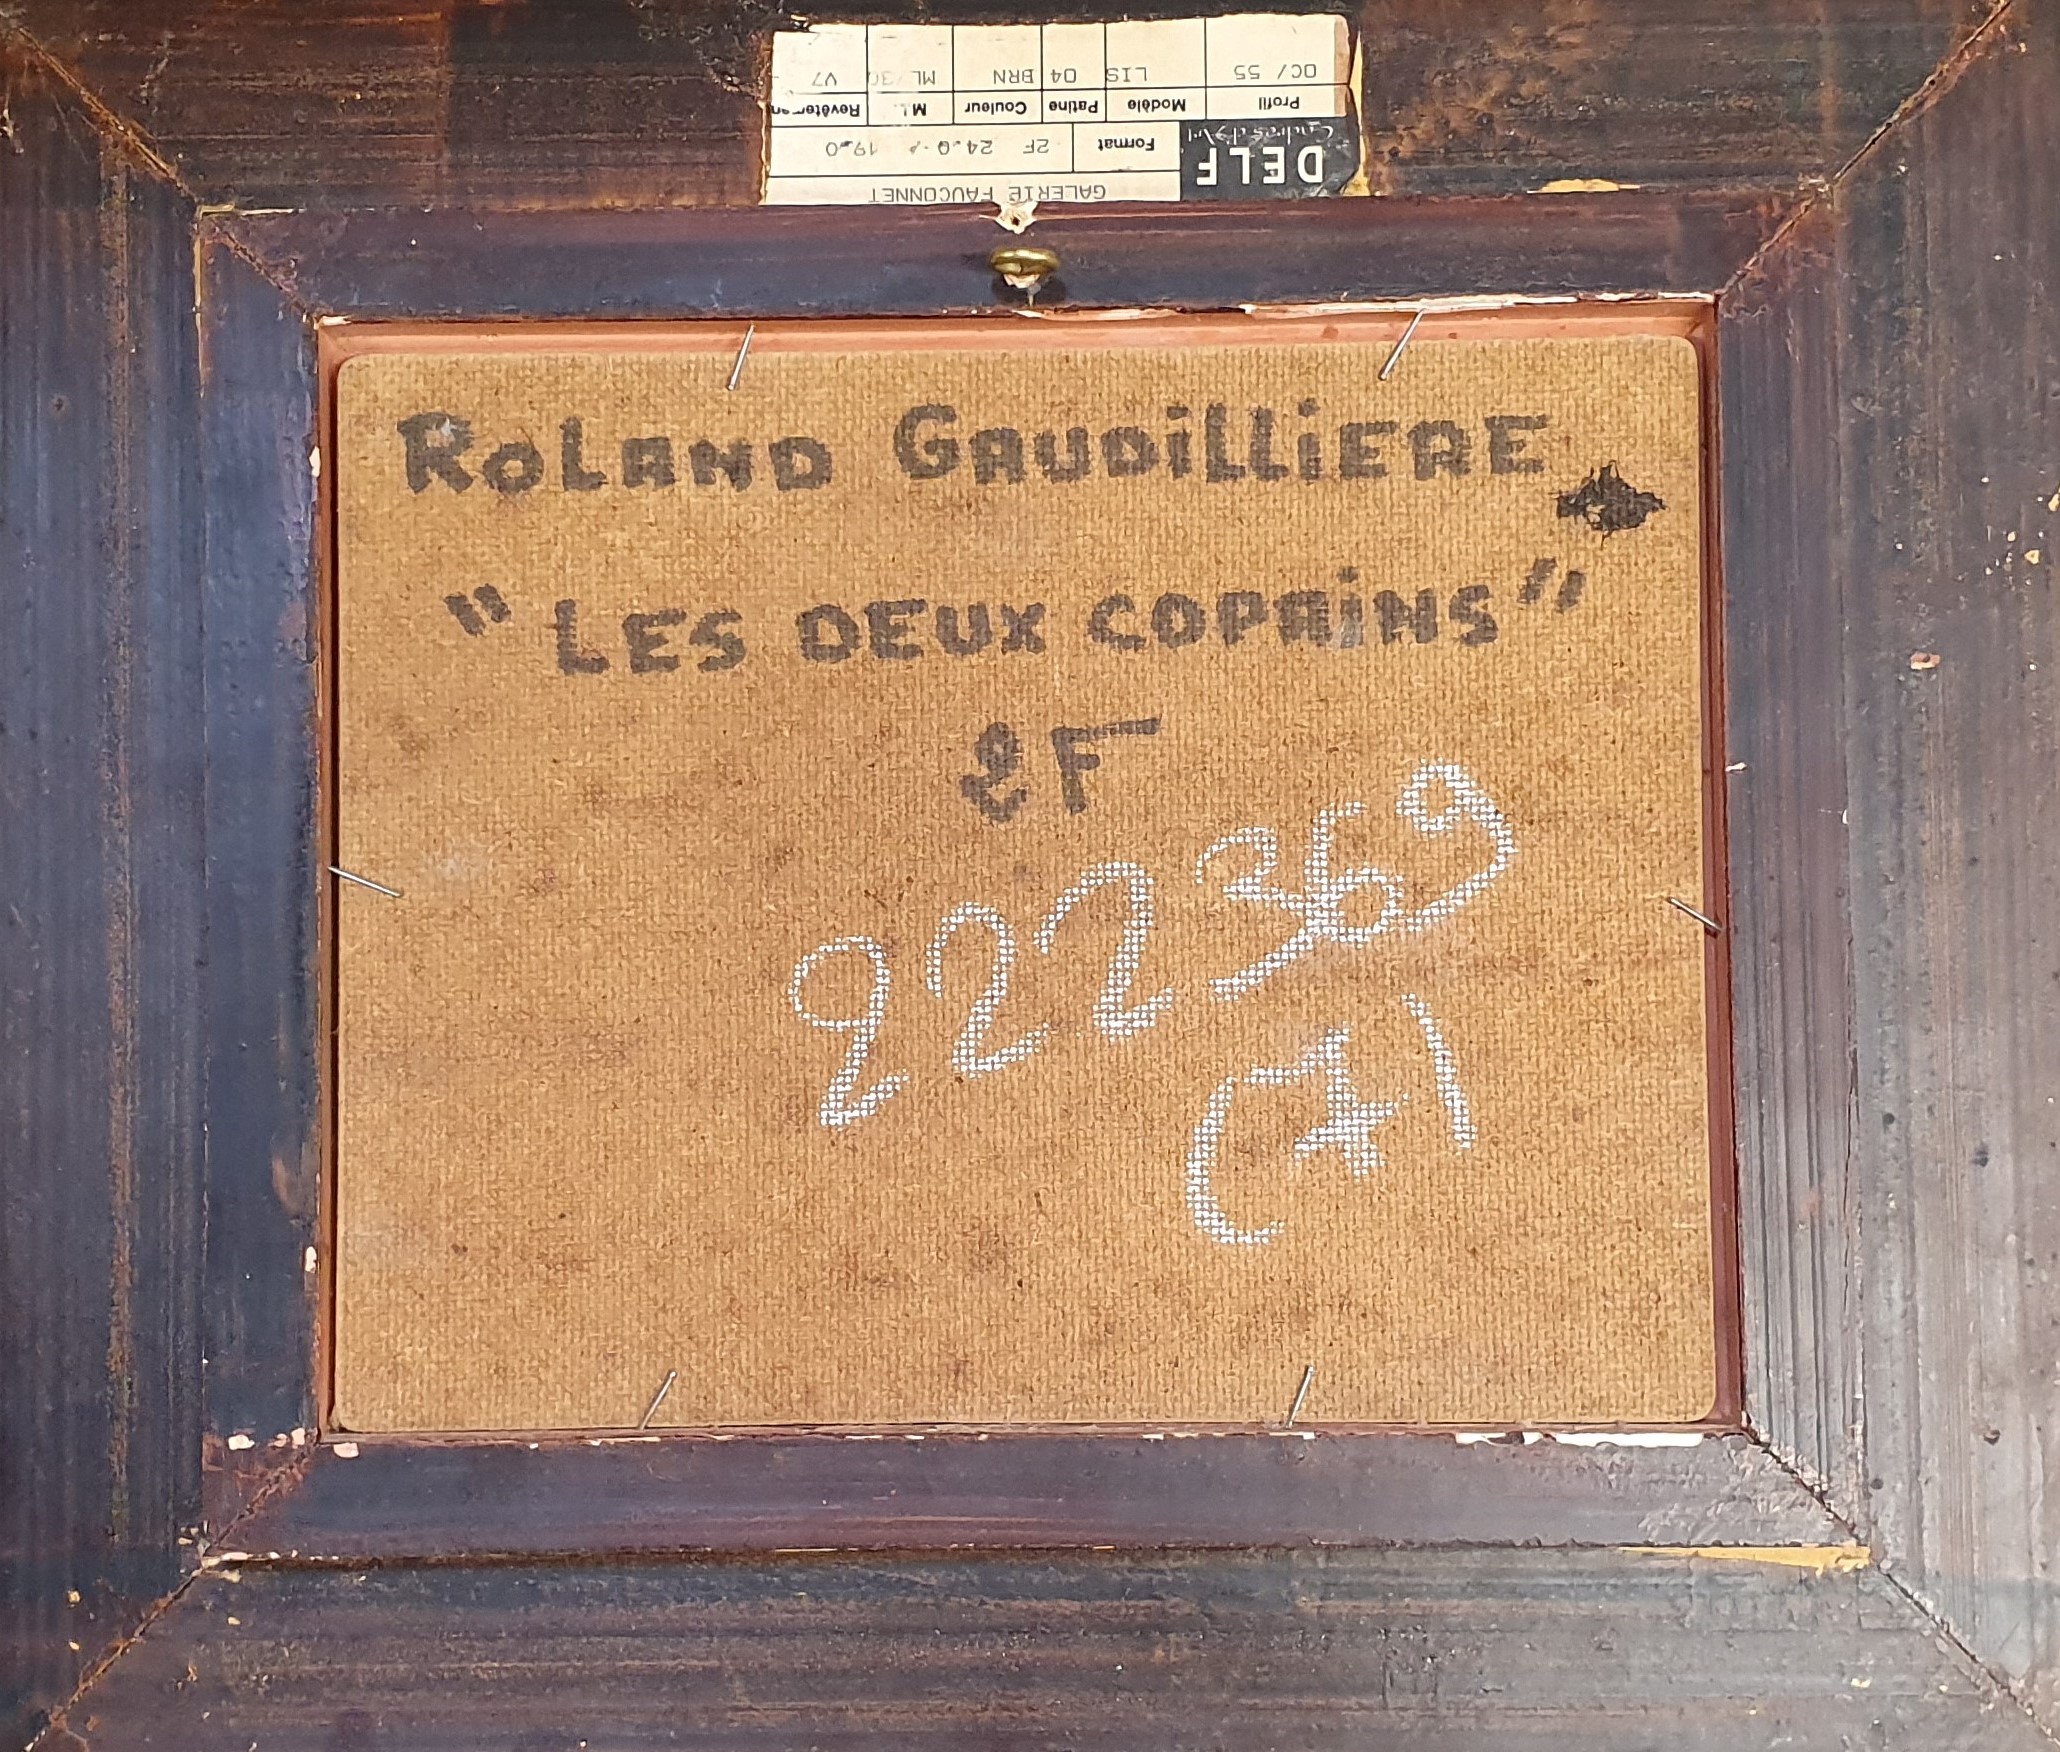 GALERIE FAUCONNET
DELF
Format 2F 24.0 19.0
Profil Modèle Patine Couleur M.L.
OC/ 55 LIS 04 BRN ML 30 V7
ROLAND GAUDiLLiERE
"LES DEUX COPAiNS"
2F
222369
(*)